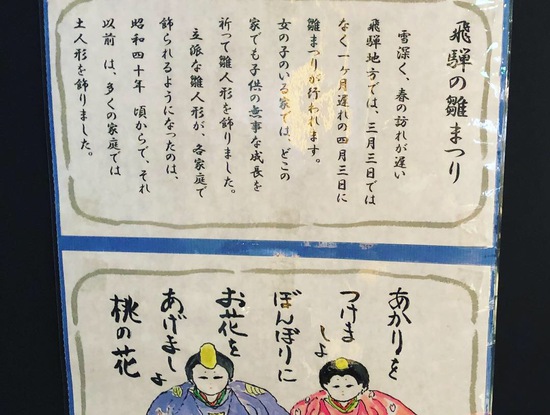 飛騨の雛まつり
雪深く、春の訪れが遅い
飛騨地方では、三月三日では
なく一ヶ月遅れの四月三日に
雛まつりが行われます。
女の子のいる家では、どこの
家でも子供の無事な成長を
祈って雛人形を飾りました。
立派な雛人形が、各家庭で
飾られるようになったのは、
昭和四十年 頃からで、それ
以前 は、多くの家庭では
土人形を飾りました。
あかりを
つけましょ
ぼんぼりに
お花を
あげましょ
桃の花